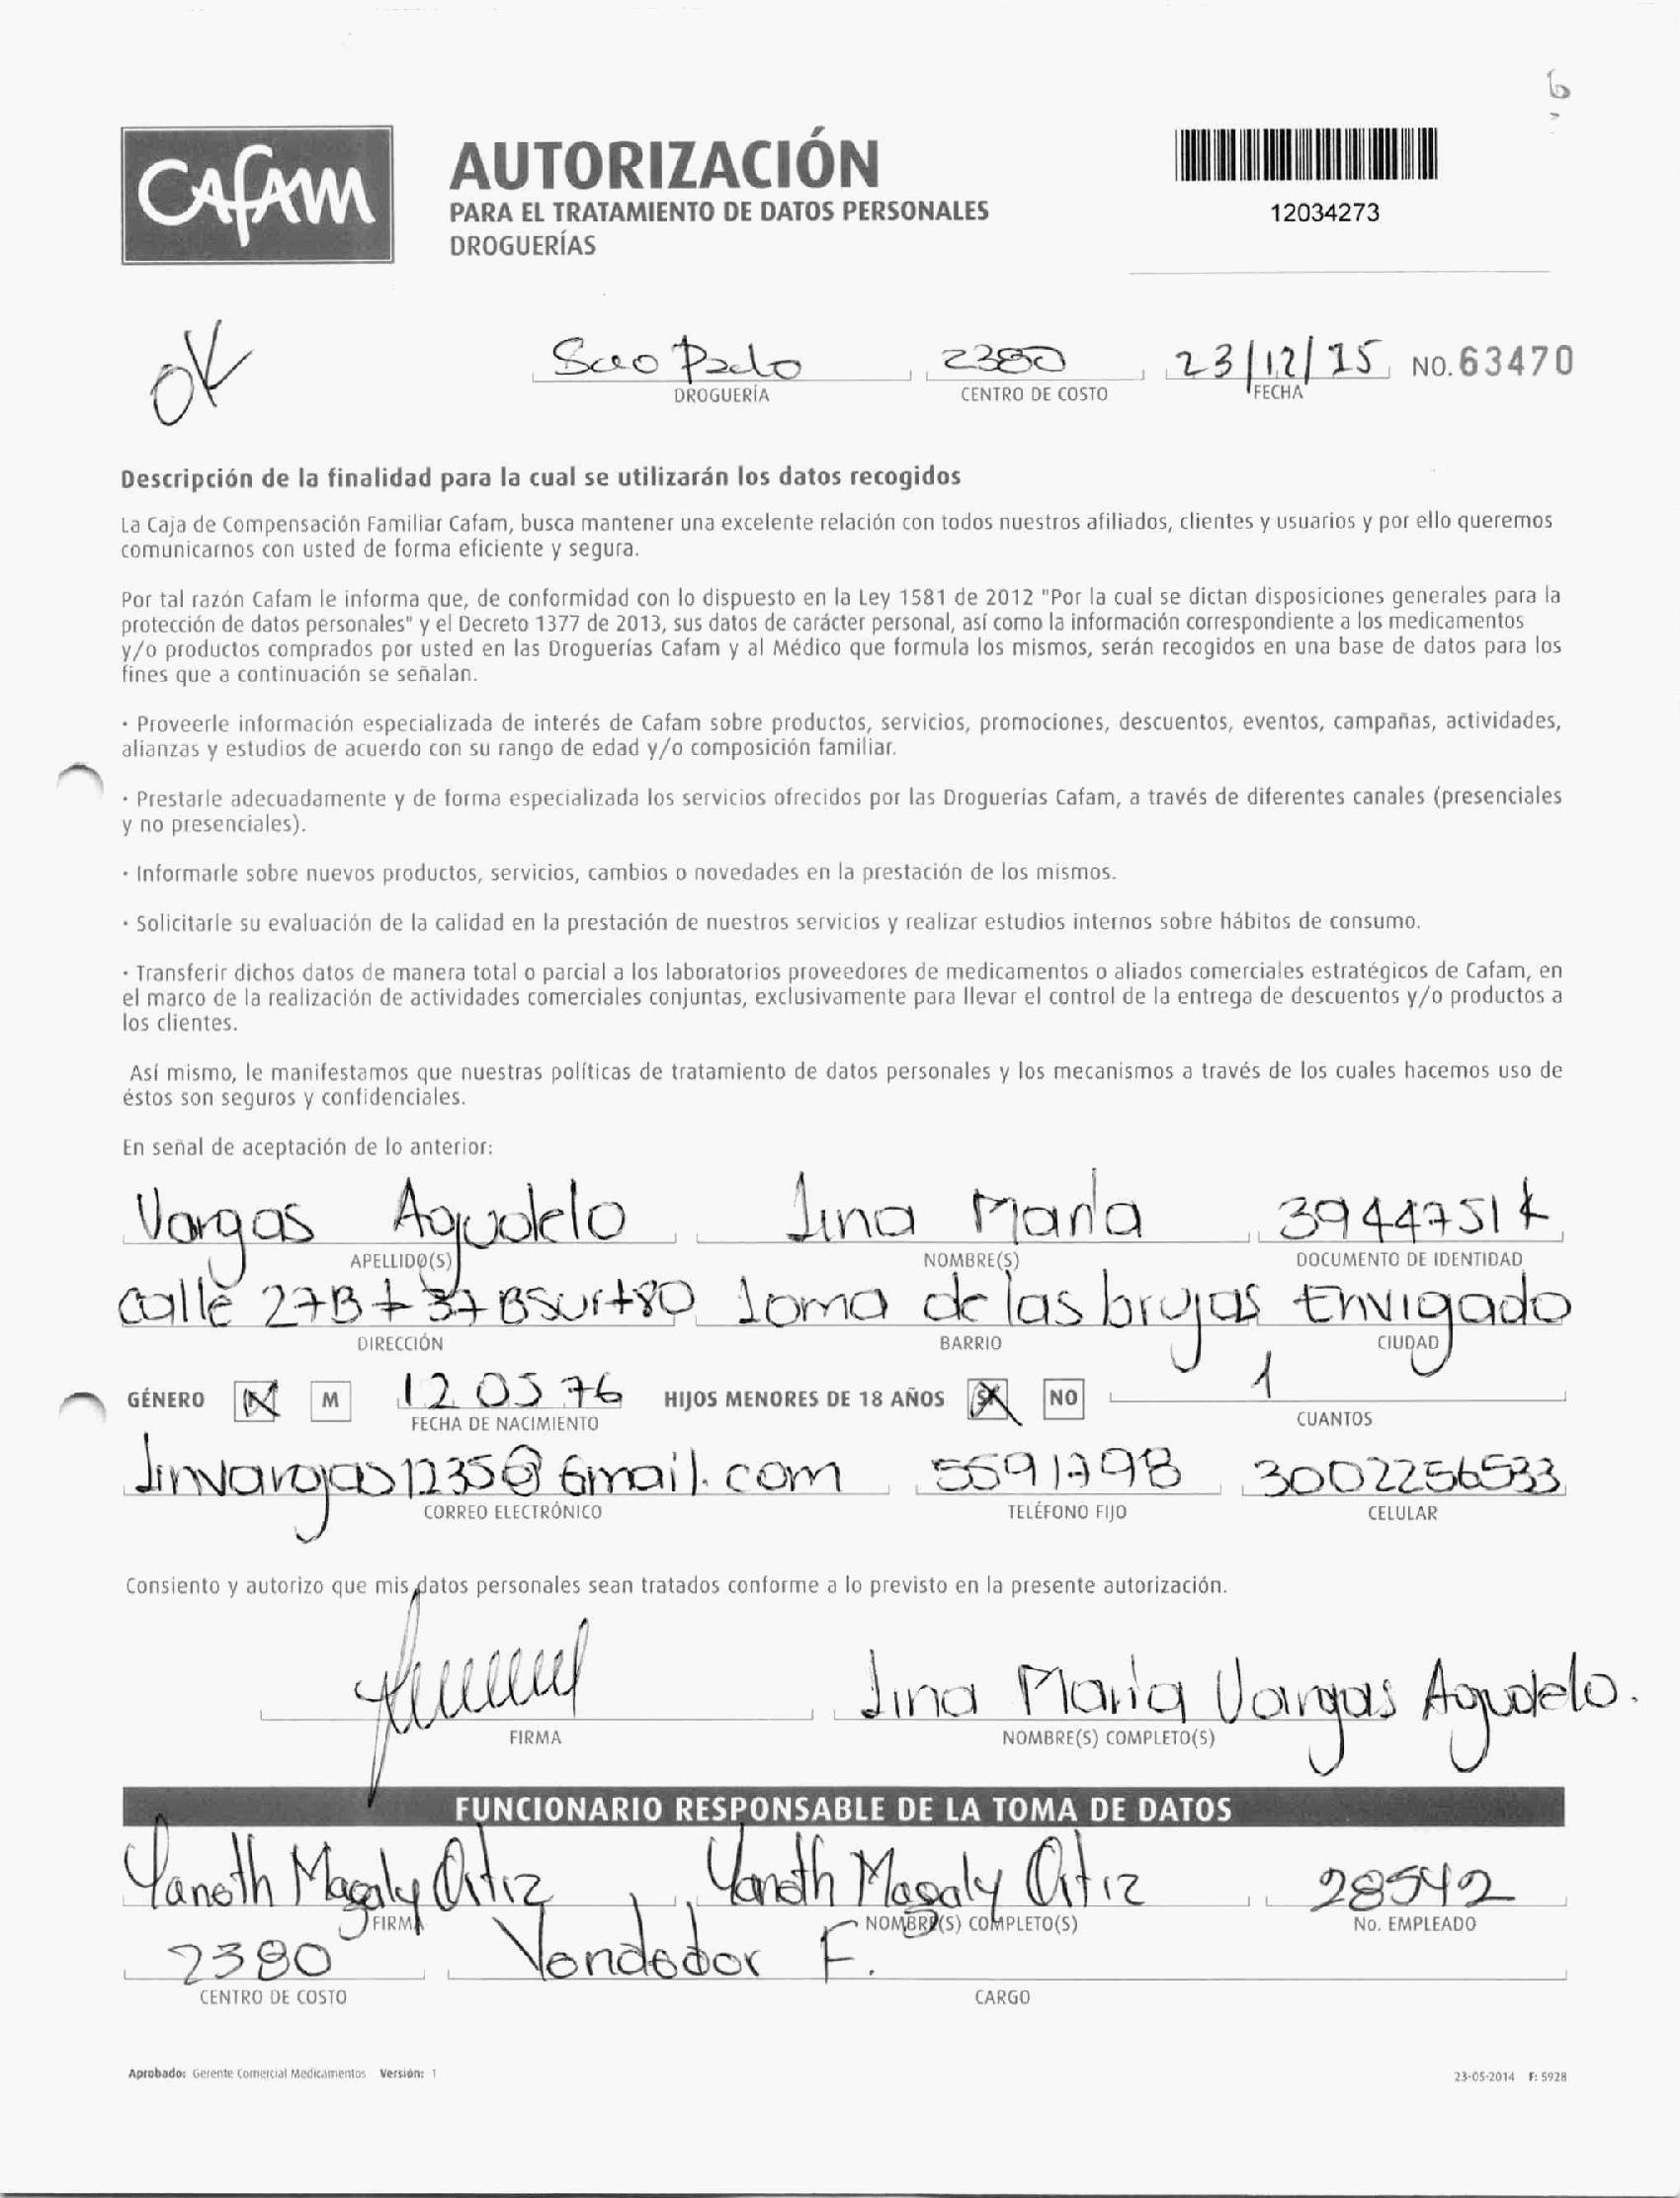 6
CAFAM
AUTORIZACIÓN
PARA EL TRATAMIENTO DE DATOS PERSONALES
DROGUERÍAS
12034273
OK
Sao Paulo 2380 23/12/15 NO. 63470
DROGUERÍA CENTRO DE COSTO FECHA
Descripción de la finalidad para la cual se utilizarán los datos recogidos
La Caja de Compensación Familiar Cafam, busca mantener una excelente relación con todos nuestros afiliados, clientes y usuarios y por ello queremos
comunicarnos con usted de forma eficiente y segura.
Por tal razón Cafam le informa que, de conformidad con lo dispuesto en la Ley 1581 de 2012 "Por la cual se dictan disposiciones generales para la
protección de datos personales" y el Decreto 1377 de 2013, sus datos de carácter personal, así como la información correspondiente a los medicamentos
y/o productos comprados por usted en las Droguerías Cafam y al Médico que formula los mismos, serán recogidos en una base de datos para los
fines que a continuación se señalan.
· Proveerle información especializada de interés de Cafam sobre productos, servicios, promociones, descuentos, eventos, campañas, actividades,
alianzas y estudios de acuerdo con su rango de edad y/o composición familiar.
· Prestarle adecuadamente y de forma especializada los servicios ofrecidos por las Droguerías Cafam, a través de diferentes canales (presenciales
y no presenciales).
· Informarle sobre nuevos productos, servicios, cambios o novedades en la prestación de los mismos.
· Solicitarle su evaluación de la calidad en la prestación de nuestros servicios y realizar estudios internos sobre hábitos de consumo.
· Transferir dichos datos de manera total o parcial a los laboratorios proveedores de medicamentos o aliados comerciales estratégicos de Cafam, en
el marco de la realización de actividades comerciales conjuntas, exclusivamente para llevar el control de la entrega de descuentos y/o productos a
los clientes.
Así mismo, le manifestamos que nuestras políticas de tratamiento de datos personales y los mecanismos a través de los cuales hacemos uso de
éstos son seguros y confidenciales.
En señal de aceptación de lo anterior:
Vargas Agudelo Lina María 3944751
APELLIDO(S) NOMBRE(S) DOCUMENTO DE IDENTIDAD
calle 27B Loma de las brujas Envigado
DIRECCIÓN BARRIO CIUDAD
GÉNERO M 12 05 76 HIJOS MENORES DE 18 AÑOS SI NO 1
FECHA DE NACIMIENTO CUANTOS
linvargas1235@Gmail.com 5591798 3002256533
CORREO ELECTRÓNICO TELÉFONO FIJO CELULAR
Consiento y autorizo que mis datos personales sean tratados conforme a lo previsto en la presente autorización.
Lina María Vargas Agudelo.
FIRMA NOMBRE(S) COMPLETO(S)
FUNCIONARIO RESPONSABLE DE LA TOMA DE DATOS
Yaneth Magaly Ortiz Yaneth Magaly Ortiz 28542
FIRMA NOMBRE(S) COMPLETO(S) No. EMPLEADO
2380 Vendedor F.
CENTRO DE COSTO CARGO
Aprobado: Gerente Comercial Medicamentos Versión: 1 23-05-2014 F: 5928